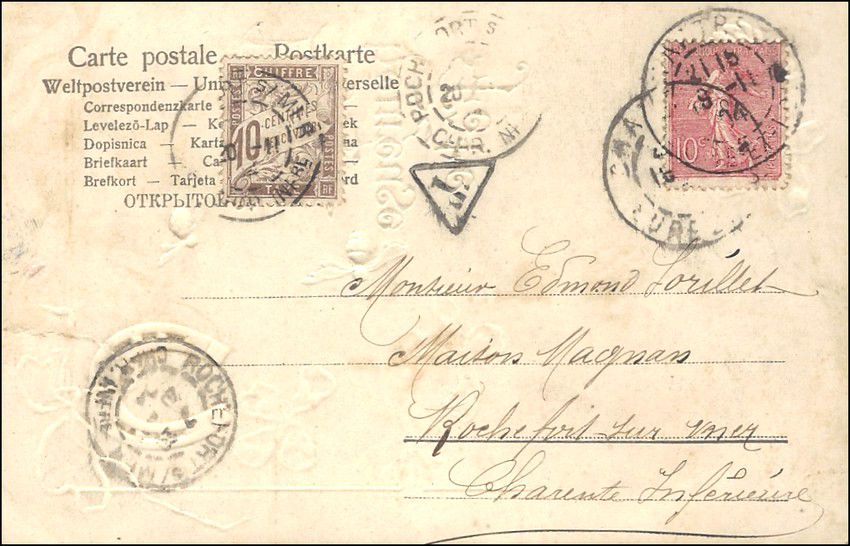 Carte postale Postkarte
Weltpostverein — Uni erselle
Correspondenzkarte
Levelező-Lap — K k
Dopisnica — Karta
Briefkaart — Ca
Brefkort — Tarjeta rd
ОТКРЫТО
CHIFFRE
POSTES
10 CENTIMES
POSTES
RF
10c
T
ROCHEFORT S/MER
CHAR. INFRE
CHARTRES
EURE
Monsieur Edmond Lorillet
Maison Magnan
Rochefort sur mer
Charente Inférieure